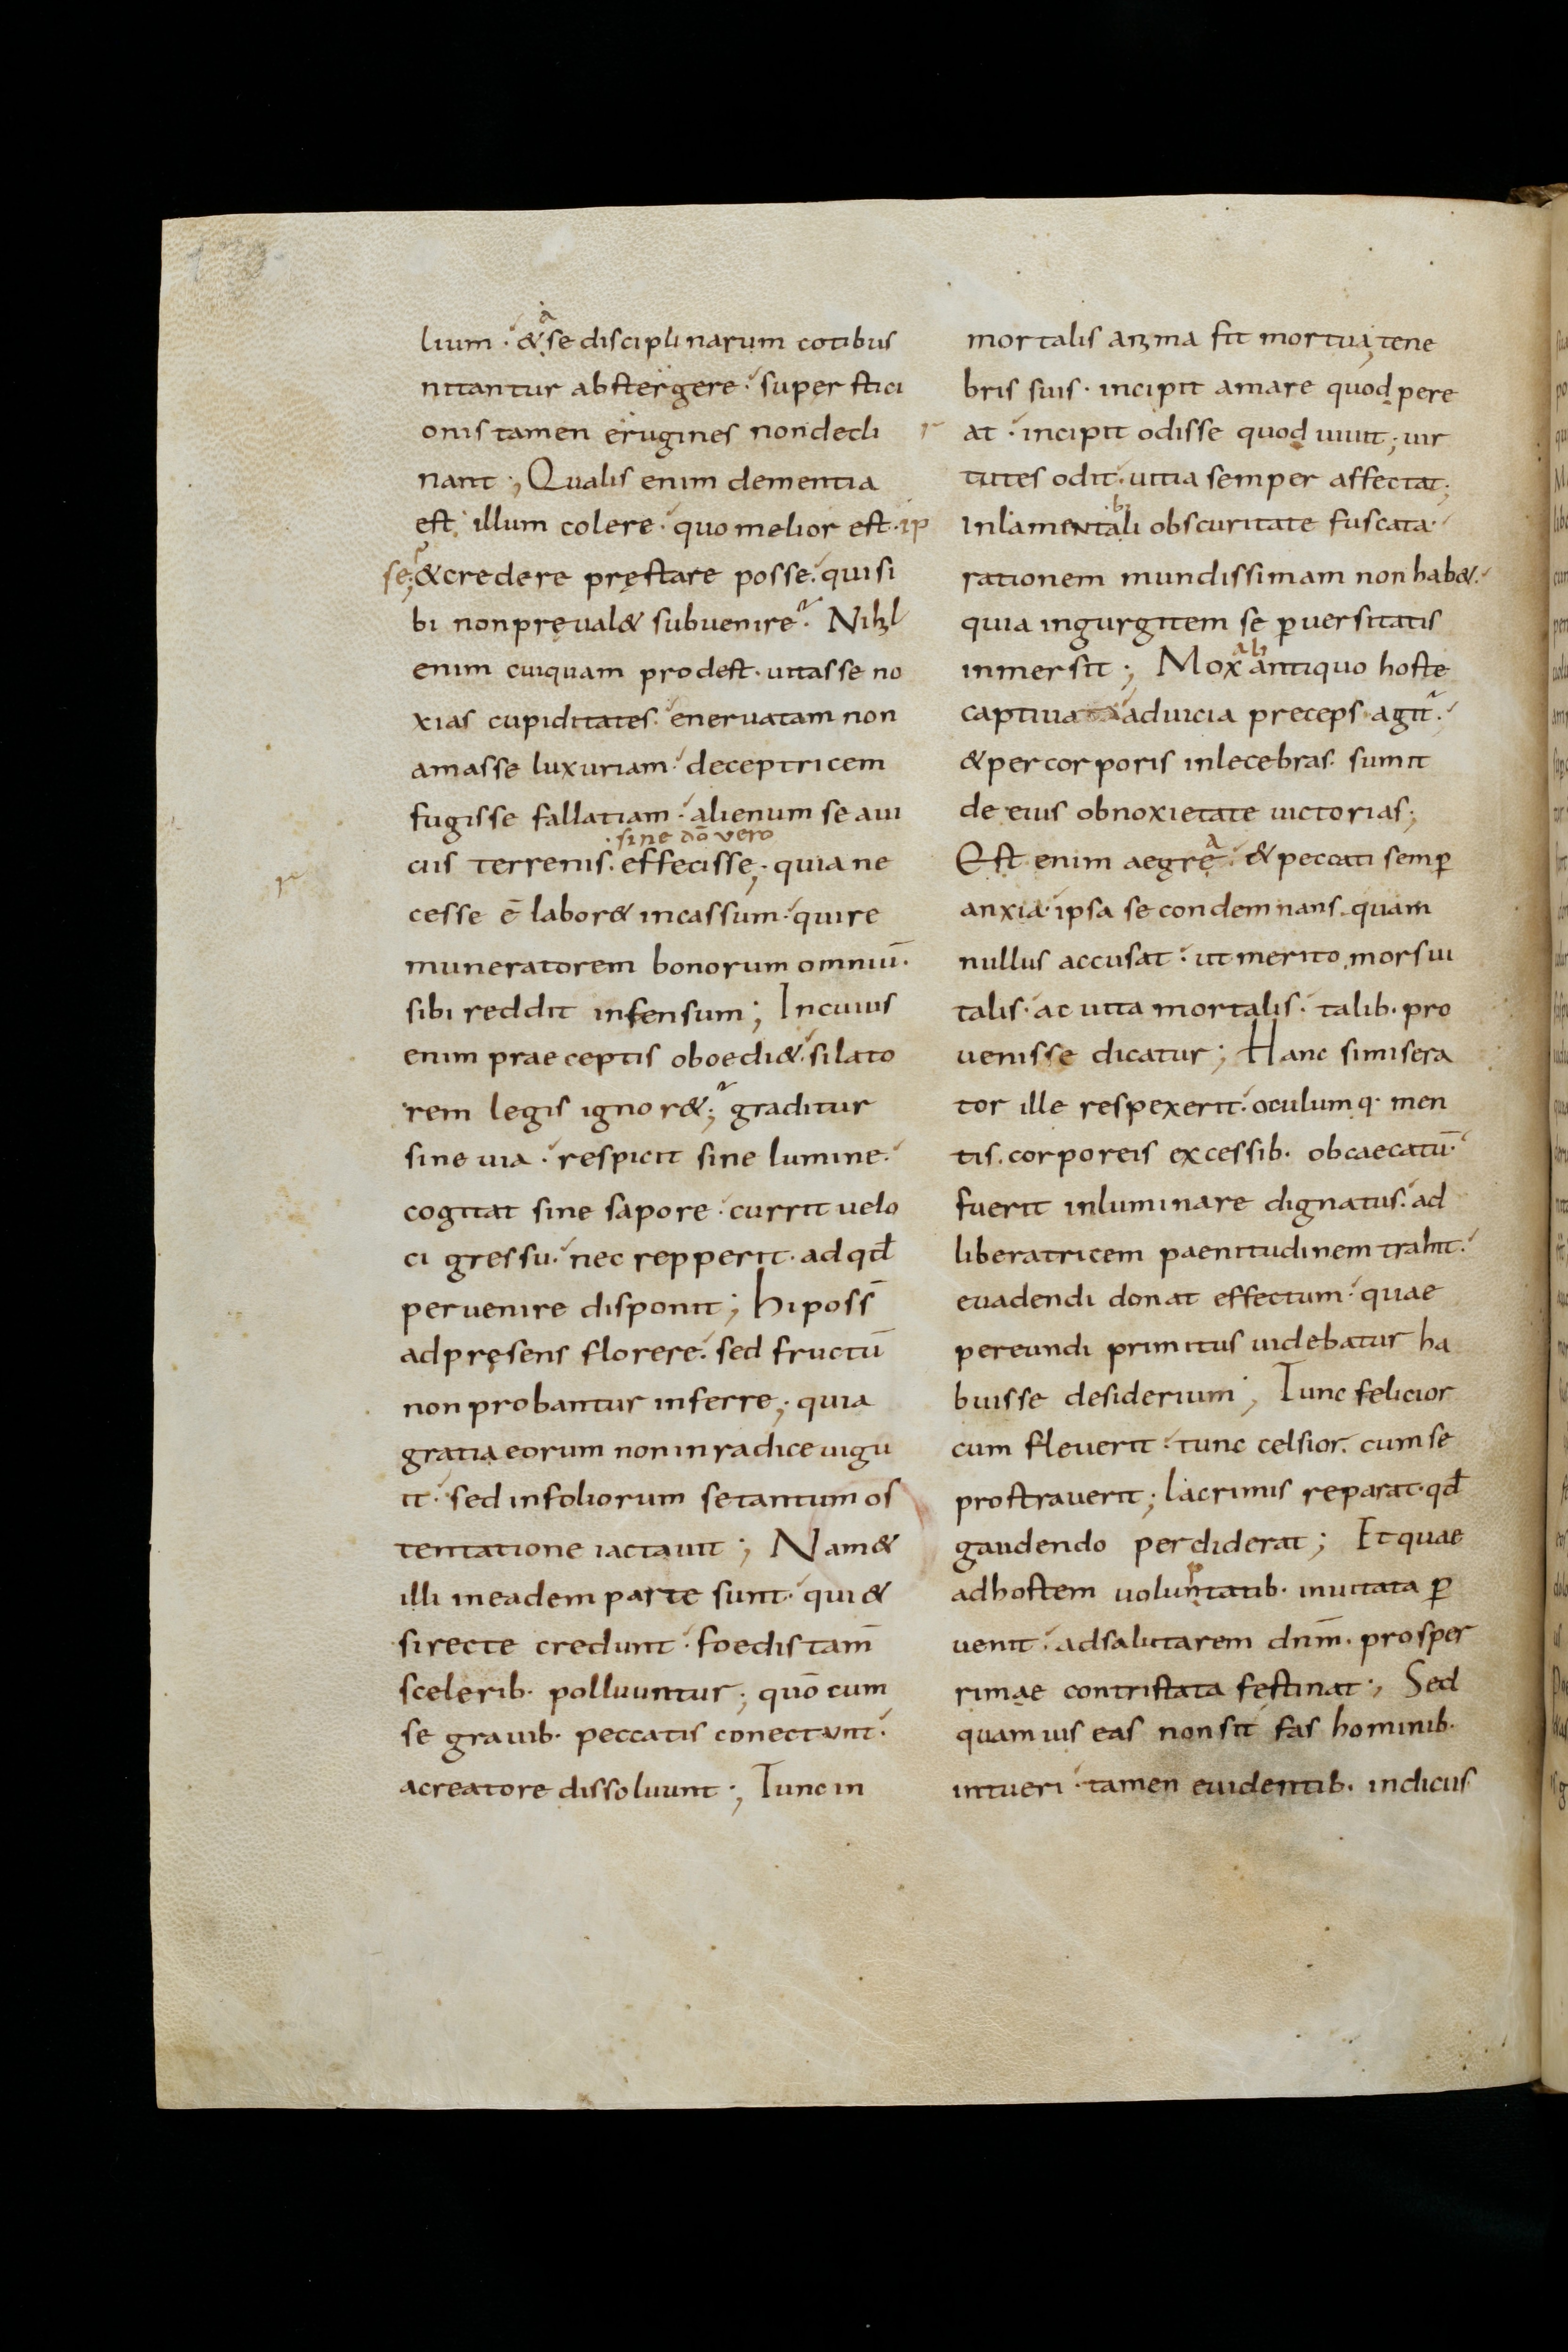 lium · & a se disciplinarum cotibus
nitantur abstergere · superstici
onis tamen erugines non decli
nant ; Qualis enim dementia
est illum colere · quo melior est · ip
se ; & credere pręstare posse · qui si
bi non pręual& subuenire · Nihil
enim cuiquam prodest · uitasse no
xias cupiditates · eneruatam non
amasse luxuriam · deceptricem
fugisse fallatiam · alienum se a uI
· sine dō vero
ciis terrenis · effecisse ; quia ne
cesse ē labor& incassum · qui re
muneratorem bonorum omniū ·
sibi reddit infensum ; In cuius
enim praeceptis oboedi& · si lato
rem legis ignor& ; graditur
sine uia · respicit sine lumine ·
cogitat sine sapore · currit uelo
ci gressu · nec repperit · ad qđ
peruenire disponit ; hi poss̄
ad pręsens florere · sed fructū
non probantur inferre ; quia
gratia eorum non in radice uigu
it · sed in foliorum se tantum os
tentatione iactauit ; Nam &
illi in eadem parte sunt · qui &
si recte credunt · foedis tam̄
sceleriḃ · polluuntur ; quō cum
se grauib · peccatis conectunt ·
a creatore dissoluunt ; Tunc in
mortalis anima fit mortua ; tene
bris suis · incipit amare quod pere
at · incipit odisse quod uiuit ; uir
tutes odit · uitia semper affectat ;
b
Inlamentali obscuritate fuscata ·
rationem mundissimam non hab& ·
quia in gurgitem se ꝑuersitatis
inmersit ; Mox ab antiquo hoste
captiua ad uicia preceps agit ·
& per corporis inlecebras · sumit
de eius obnoxietate uictorias ;
Est enim aegra · & peccati semꝑ
anxia · ipsa se condemnans · quam
nullus accusat · ut merito mors ui
talis · ac uita mortalis · talib · pro
uenisse dicatur ; Hanc si misera
tor ille respexerit · oculumq · men
tis · corporeis excessib · obcaecatū ·
fuerit inluminare dignatus · ad
liberatricem paenitudinem trahit ·
euadendi donat effectum · quae
pereundi primitus uidebatur ha
buisse desiderium ; Tunc felicior
cum fleuerit · tunc celsior · cum se
prostrauerit ; lacrimis reparat · qđ
gaudendo perdiderat ; Et quae
p
ad hostem voluntatib · inuitata ꝑ
uenit · ad salutarem dnm̄ · prosper
rimae contristata festinat ; Sed
quamuis eas non sit fas hominib ·
intueri · tamen euidentib · indiciis